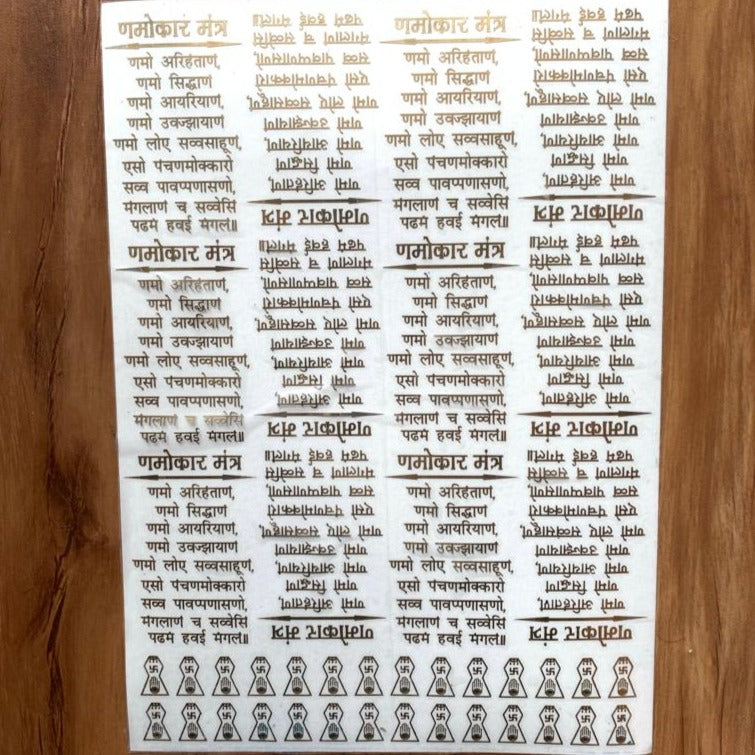 णमोकार मंत्र
णमो अरिहंताणं,
णमो सिद्धाणं
णमो आयरियाणं,
णमो उवज्झायाणं
णमो लोए सव्वसाहूणं,
एसो पंचणमोक्कारो
सव्व पावप्पणासणो,
मंगलाणं च सव्वेसिं
पढमं हवई मंगलं॥
णमोकार मंत्र
णमो अरिहंताणं,
णमो सिद्धाणं
णमो आयरियाणं,
णमो उवज्झायाणं
णमो लोए सव्वसाहूणं,
एसो पंचणमोक्कारो
सव्व पावप्पणासणो,
मंगलाणं च सव्वेसिं
पढमं हवई मंगलं॥
णमोकार मंत्र
णमो अरिहंताणं,
णमो सिद्धाणं
णमो आयरियाणं,
णमो उवज्झायाणं
णमो लोए सव्वसाहूणं,
एसो पंचणमोक्कारो
सव्व पावप्पणासणो,
मंगलाणं च सव्वेसिं
पढमं हवई मंगलं॥
णमोकार मंत्र
णमो अरिहंताणं,
णमो सिद्धाणं
णमो आयरियाणं,
णमो उवज्झायाणं
णमो लोए सव्वसाहूणं,
एसो पंचणमोक्कारो
सव्व पावप्पणासणो,
मंगलाणं च सव्वेसिं
पढमं हवई मंगलं॥
णमोकार मंत्र
णमो अरिहंताणं,
णमो सिद्धाणं
णमो आयरियाणं,
णमो उवज्झायाणं
णमो लोए सव्वसाहूणं,
एसो पंचणमोक्कारो
सव्व पावप्पणासणो,
मंगलाणं च सव्वेसिं
पढमं हवई मंगलं॥
णमोकार मंत्र
णमो अरिहंताणं,
णमो सिद्धाणं
णमो आयरियाणं,
णमो उवज्झायाणं
णमो लोए सव्वसाहूणं,
एसो पंचणमोक्कारो
सव्व पावप्पणासणो,
मंगलाणं च सव्वेसिं
पढमं हवई मंगलं॥
णमोकार मंत्र
णमो अरिहंताणं,
णमो सिद्धाणं
णमो आयरियाणं,
णमो उवज्झायाणं
णमो लोए सव्वसाहूणं,
एसो पंचणमोक्कारो
सव्व पावप्पणासणो,
मंगलाणं च सव्वेसिं
पढमं हवई मंगलं॥
णमोकार मंत्र
णमो अरिहंताणं,
णमो सिद्धाणं
णमो आयरियाणं,
णमो उवज्झायाणं
णमो लोए सव्वसाहूणं,
एसो पंचणमोक्कारो
सव्व पावप्पणासणो,
मंगलाणं च सव्वेसिं
पढमं हवई मंगलं॥
णमोकार मंत्र
णमो अरिहंताणं,
णमो सिद्धाणं
णमो आयरियाणं,
णमो उवज्झायाणं
णमो लोए सव्वसाहूणं,
एसो पंचणमोक्कारो
सव्व पावप्पणासणो,
मंगलाणं च सव्वेसिं
पढमं हवई मंगलं॥
णमोकार मंत्र
णमो अरिहंताणं,
णमो सिद्धाणं
णमो आयरियाणं,
णमो उवज्झायाणं
णमो लोए सव्वसाहूणं,
एसो पंचणमोक्कारो
सव्व पावप्पणासणो,
मंगलाणं च सव्वेसिं
पढमं हवई मंगलं॥
णमोकार मंत्र
णमो अरिहंताणं,
णमो सिद्धाणं
णमो आयरियाणं,
णमो उवज्झायाणं
णमो लोए सव्वसाहूणं,
एसो पंचणमोक्कारो
सव्व पावप्पणासणो,
मंगलाणं च सव्वेसिं
पढमं हवई मंगलं॥
णमोकार मंत्र
णमो अरिहंताणं,
णमो सिद्धाणं
णमो आयरियाणं,
णमो उवज्झायाणं
णमो लोए सव्वसाहूणं,
एसो पंचणमोक्कारो
सव्व पावप्पणासणो,
मंगलाणं च सव्वेसिं
पढमं हवई मंगलं॥